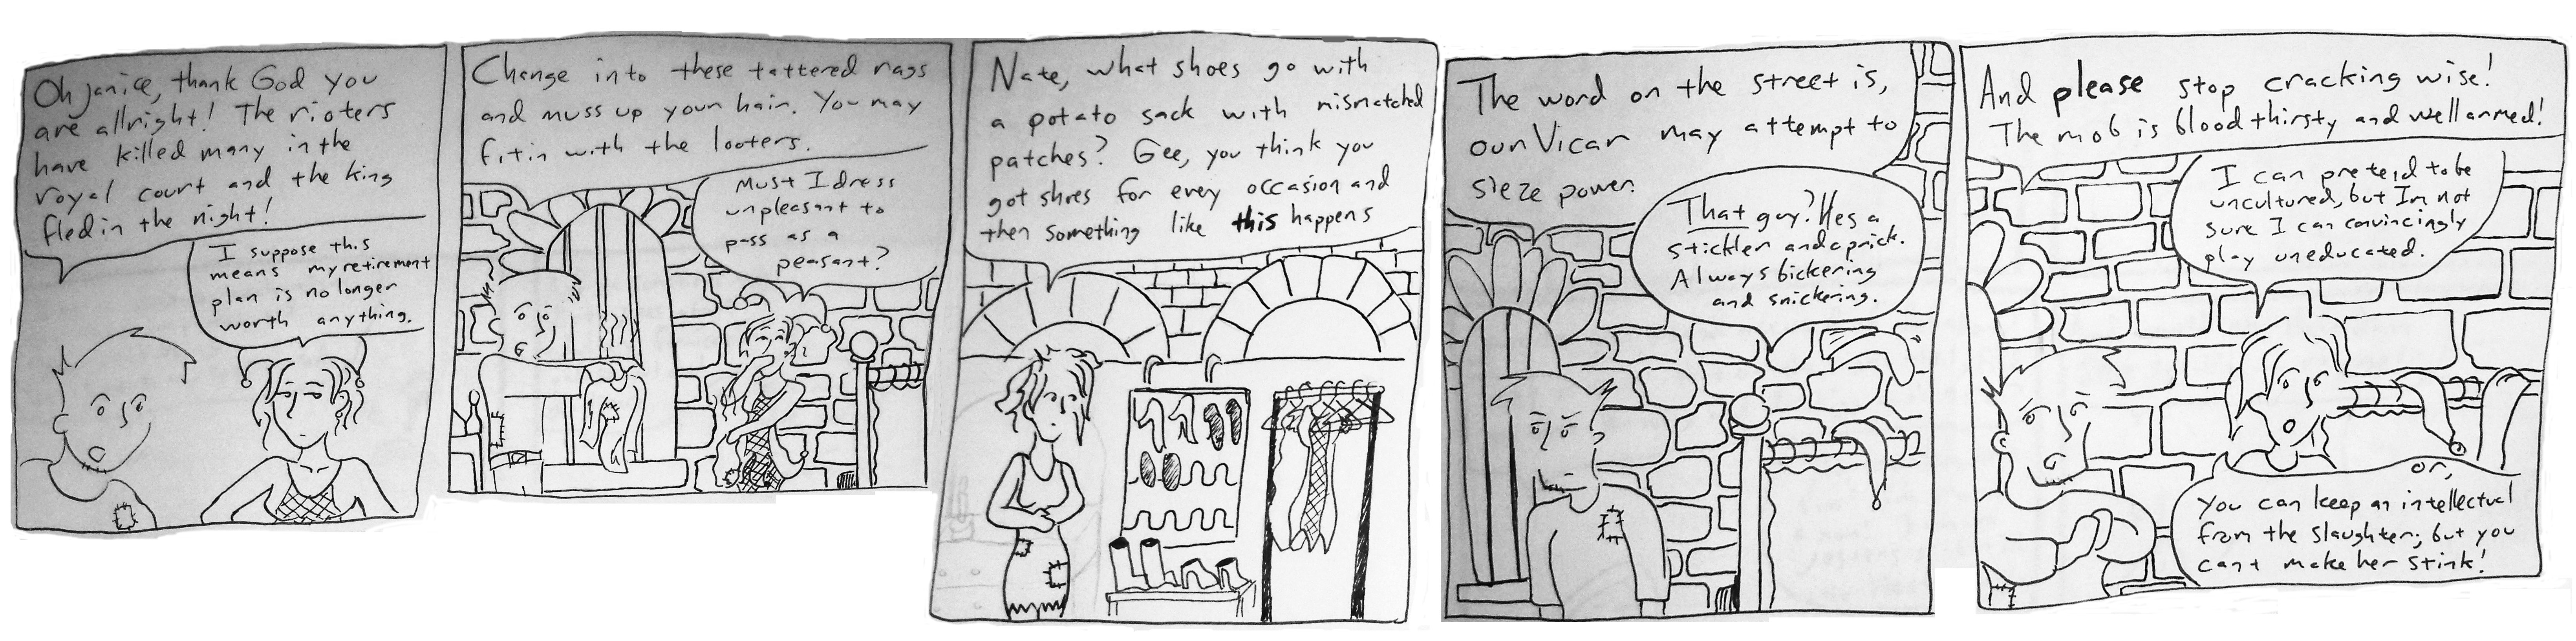 Oh Janice, thank God you
are allright! The rioters
have killed many in the
royal court and the king
fled in the night!
I suppose this
means my retirement
plan is no longer
worth anything.
Change into these tattered rags
and muss up your hair. You may
fit in with the looters.
Must I dress
unpleasant to
pass as a
peasant?
Nate, what shoes go with
a potato sack with mismatched
patches? Gee, you think you
got shoes for every occasion and
then something like this happens
The word on the street is,
our Vicar may attempt to
sieze power.
That guy? Hes a
stickler and a prick.
Always bickering
and snickering.
And please stop cracking wise!
The mob is blood thirsty and well armed!
I can pretend to be
uncultured, but Im not
sure I can convincingly
play uneducated.
or,
You can keep an intellectual
from the slaughter; but you
cant make her stink!